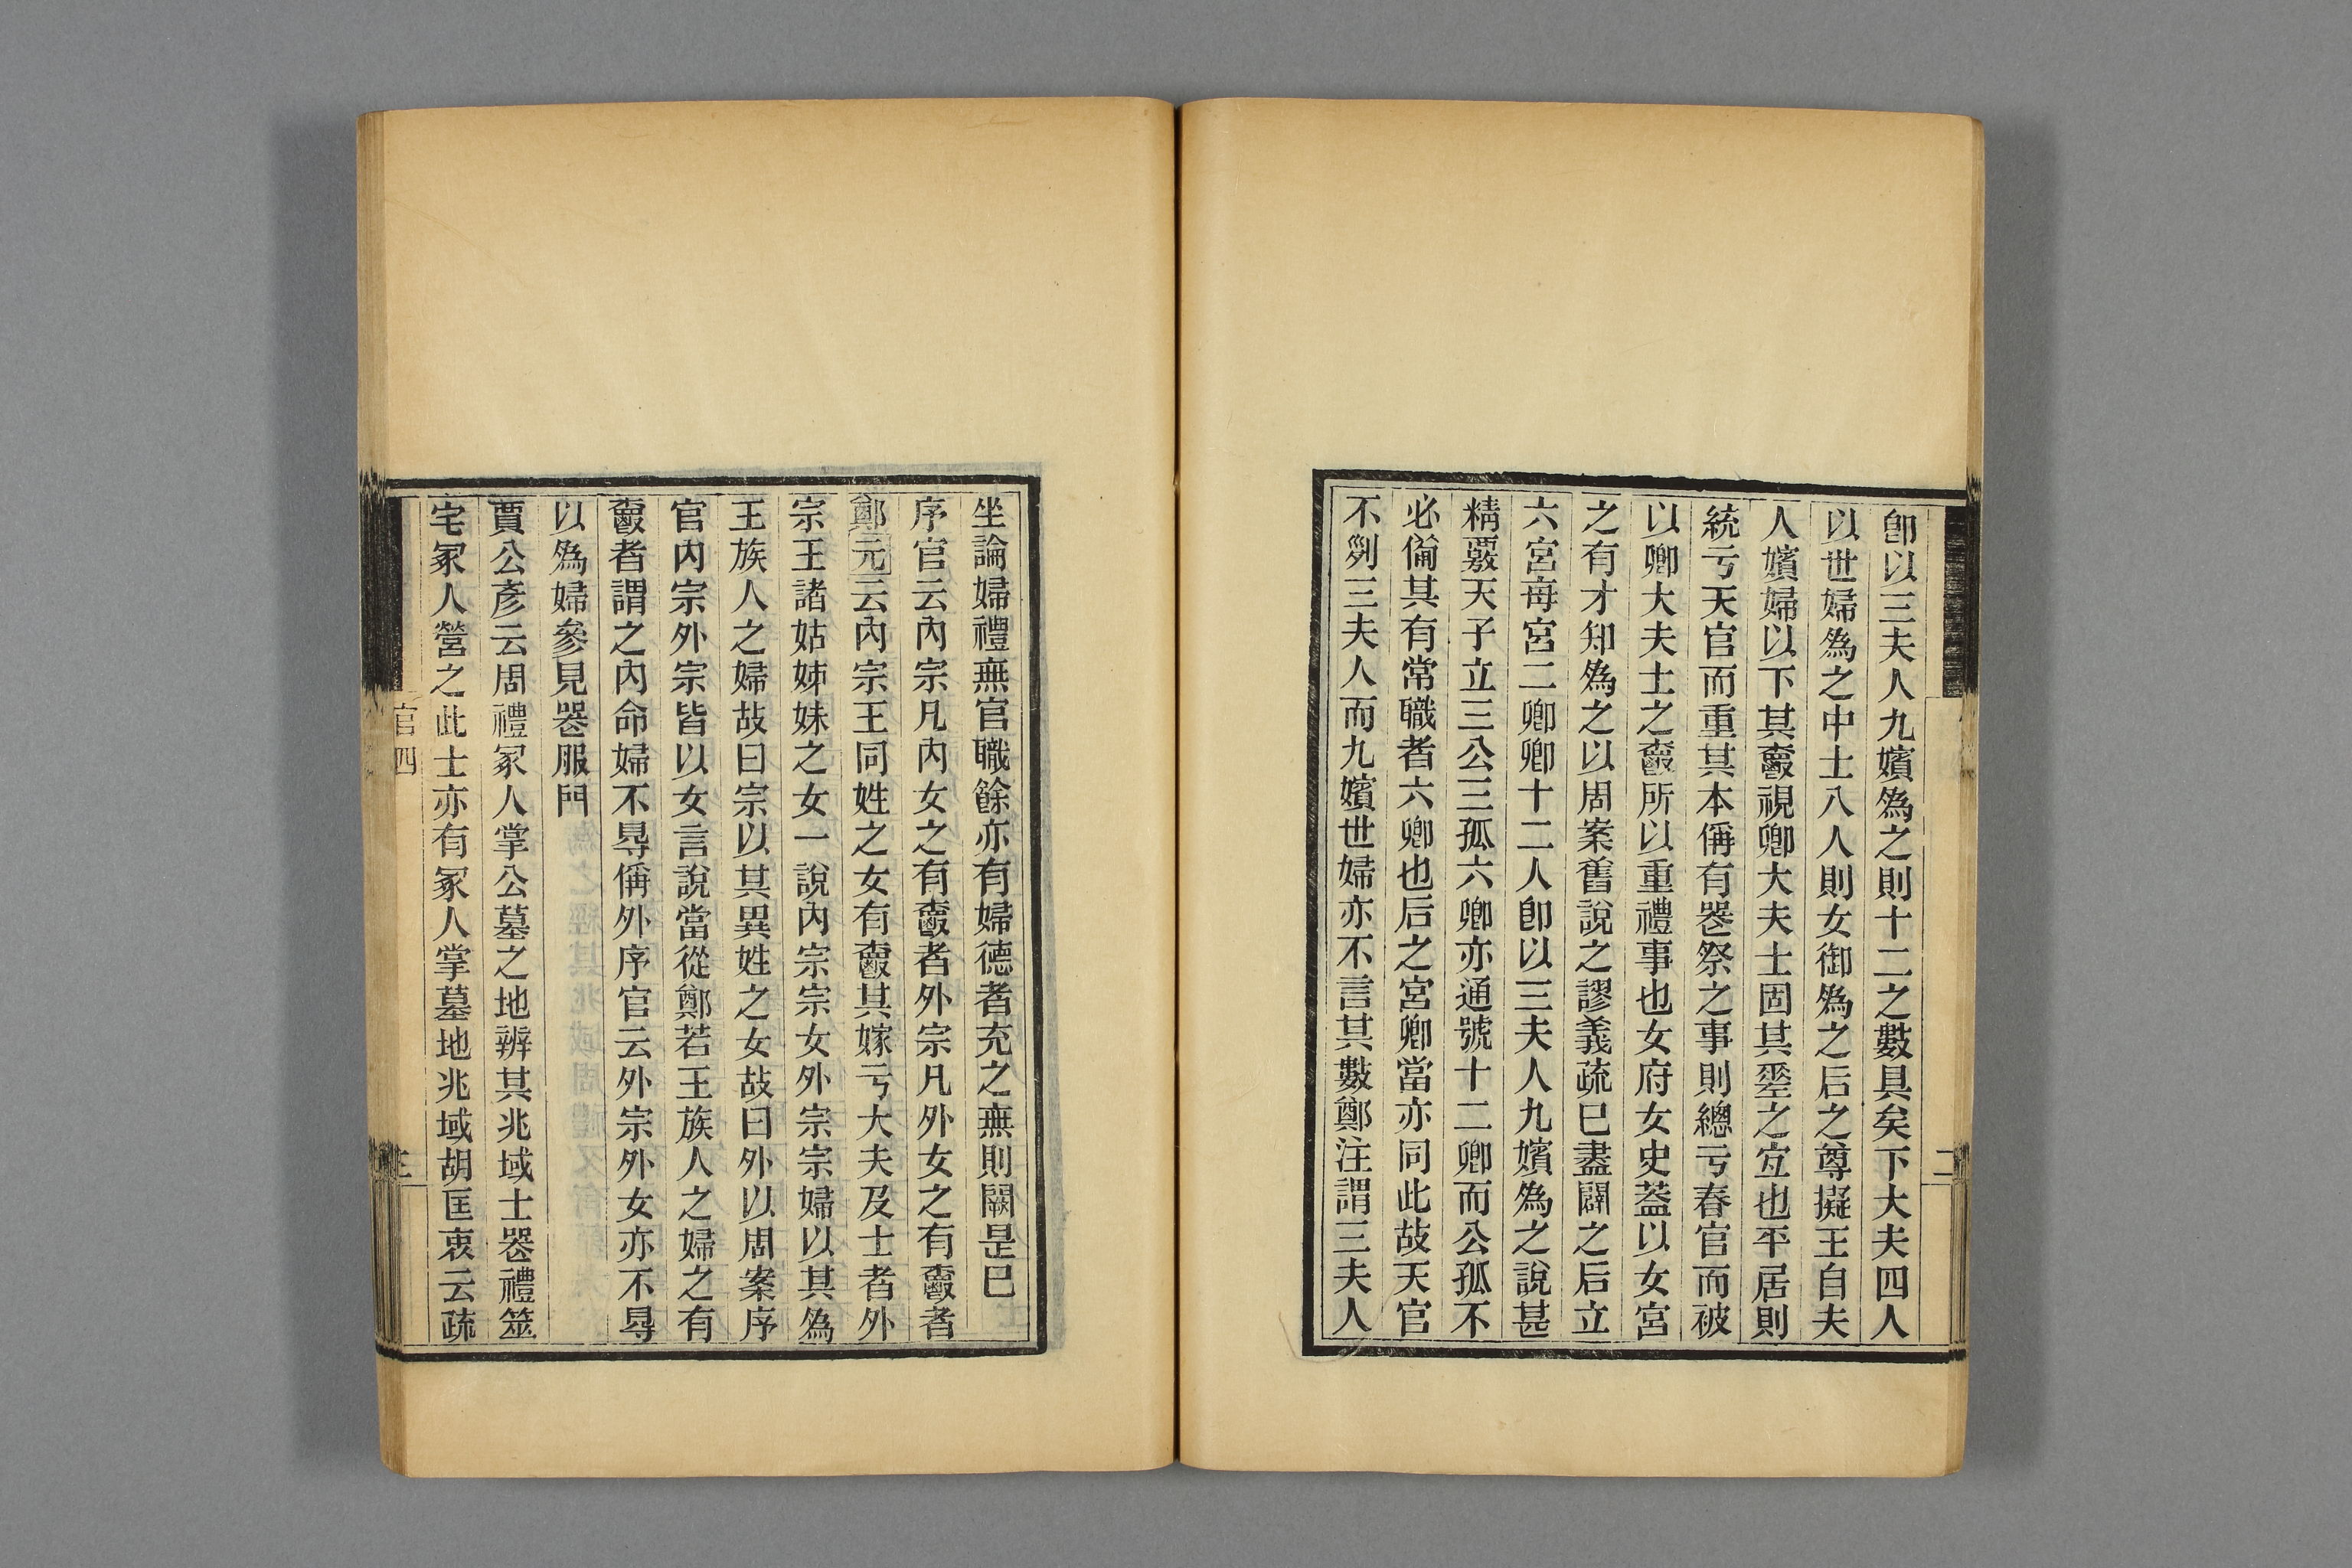 卽以三夫人九嬪爲之則十二之數具矣下大夫四人
以世婦爲之中士八人則女御爲之后之尊擬王自夫
人嬪婦以下其𧷓視卿大夫士固其𡍮之宐也平居則
統亏天官而重其本偁有器祭之事則總亏春官而被
以卿大夫士之𧷓所以重禮事也女府女史葢以女宮
之有才知爲之以周案舊說之謬義疏已盡闢之后立
六宮每宮二卿卿十二人卽以三夫人九嬪爲之說甚
精覈天子立三公三孤六卿亦通號十二卿而公孤不
必僃其有常職者六卿也后之宮卿當亦同此故天官
不列三夫人而九嬪世婦亦不言其數鄭注謂三夫人
二
坐論婦禮無官職餘亦有婦德者充之無則闕是已
序官云內宗凡內女之有𧷓者外宗凡外女之有𧷓者
鄭元云內宗王同姓之女有𧷓其嫁亏大夫及士者外
宗王諸姑姊妹之女一說內宗宗女外宗宗婦以其爲
王族人之婦故曰宗以其異姓之女故曰外以周案序
官內宗外宗皆以女言說當從鄭若王族人之婦之有
𧷓者謂之內命婦不㝵偁外序官云外宗外女亦不㝵
以爲婦參見器服門
賈公彥云周禮冢人掌公墓之地辨其兆域士器禮筮
宅冢人營之此士亦有冢人掌墓地兆域胡匡衷云疏
官四
三